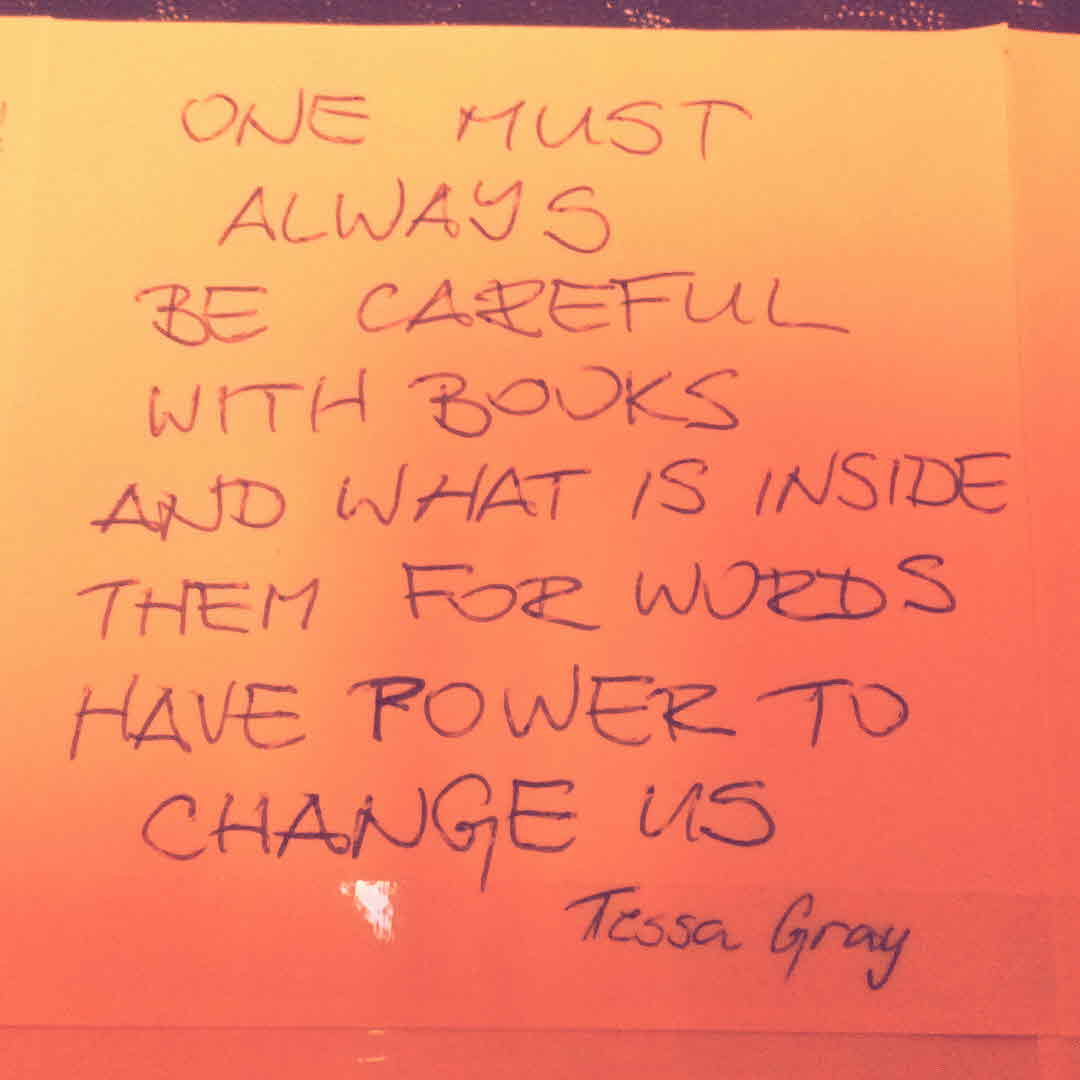 ONE MUST
ALWAYS
BE CAREFUL
WITH BOOKS
AND WHAT IS INSIDE
THEM FOR WORDS
HAVE POWER TO
CHANGE US
Tessa Gray